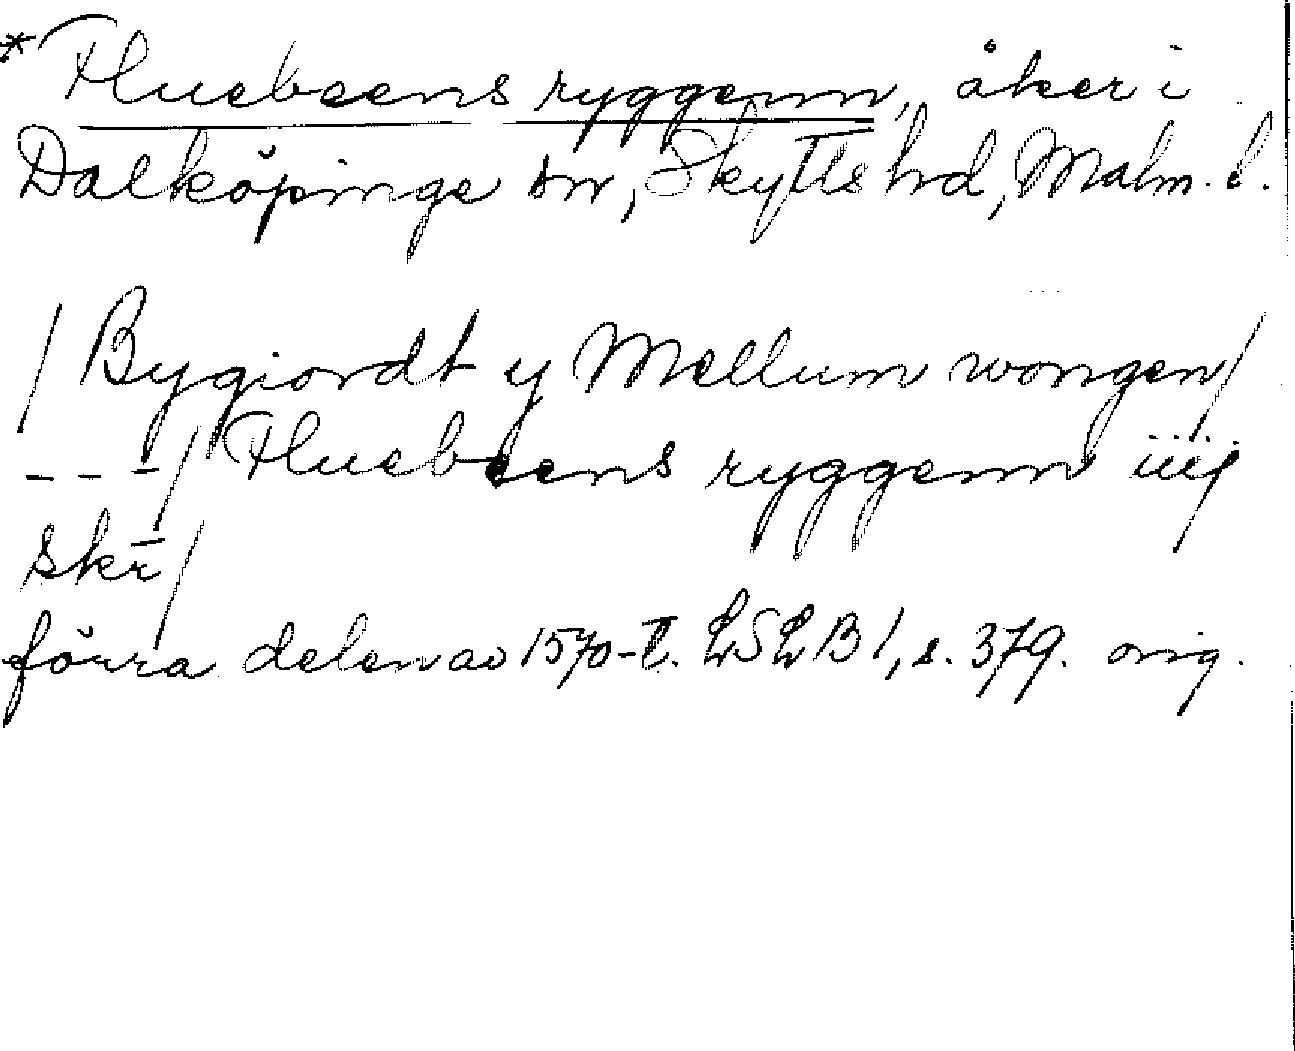 * Hluebeens ryggenn, åker i
Dalköpinge sn, Skytts hd, Malm. l.
/ Bygiordt y Mellum wongen /
- - - / Hluebeens ryggenn iiij
skr /
förra delen av 1570-t. LSLB 1, s. 379. orig.